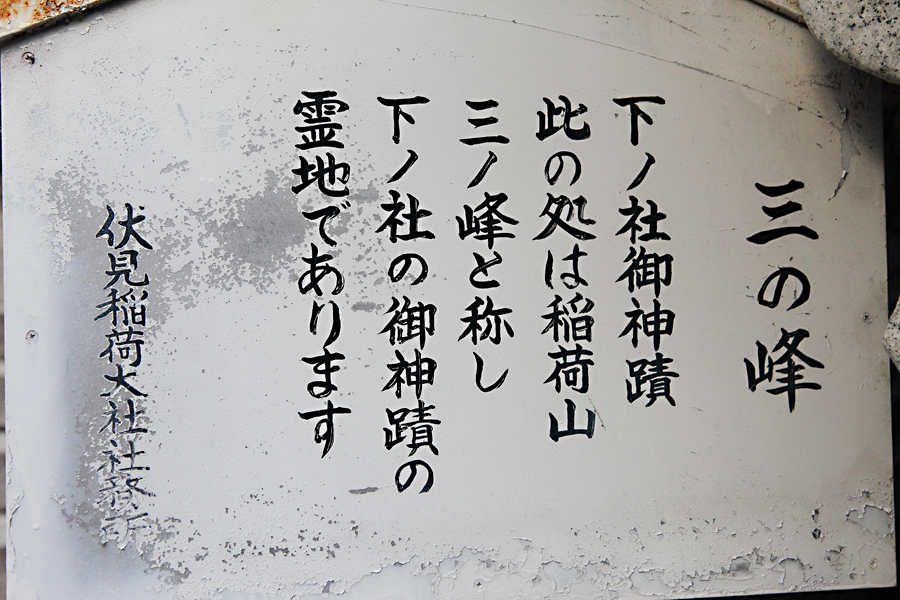 三の峰
下ノ社御神蹟
此の処は稲荷山
三ノ峰と称し
下ノ社の御神蹟の
霊地であります
伏見稲荷大社社務所